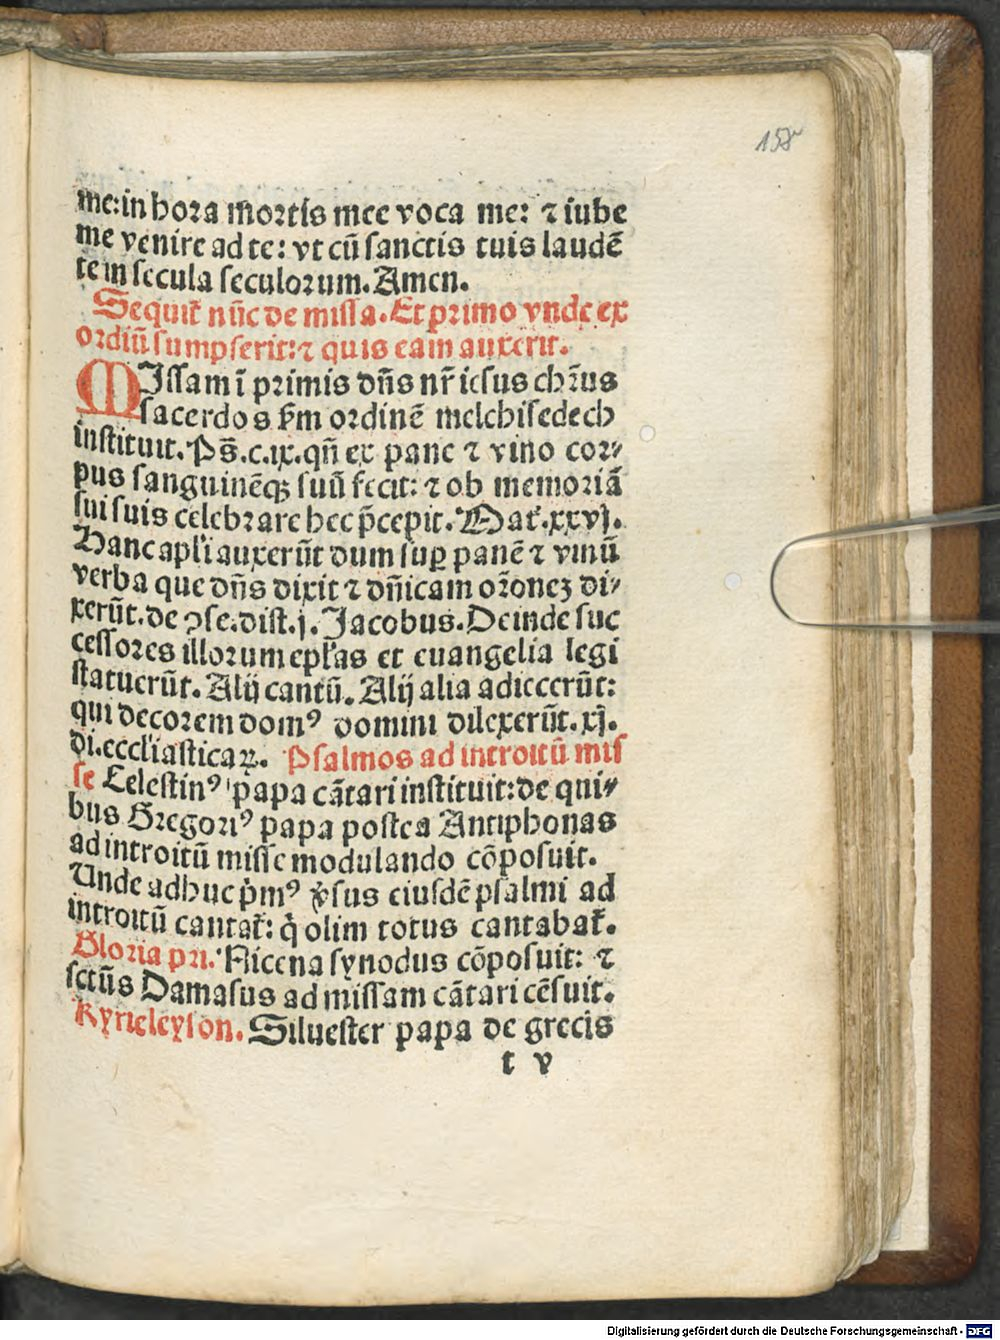 158r
me: in hora mortis mee voca me: ⁊ iube
me venire ad te: vt cū sanctis tuis laudē
te in secula seculorum. Amen.
Sequit᷑ nūc de missa. Et primo vnde ex
ordiū sumpserit: ⁊ quis eam auxerit.
MIssam ī primis dn̄s nr̄ iesus chr̄us
sacerdos s̄m ordinē melchisedech
instituit. Ps̄. c.ix. qn̄ ex pane ⁊ vino cor⸗
pus sanguinēqꝫ suū fecit: ⁊ ob memoriā
sui suis celebrare hec p̄cepit. Mat᷑. xxvj.
Hanc apl'i auxerūt dum suꝑ panē ⁊ vinū
verba que dn̄s dixit ⁊ dn̄icam or̄oneꝫ di⸗
xerūt. de ꝯse. dist. j. Jacobus. Deinde suc
cessores illorum epl'as et euangelia legi
statuerūt. Alij cantū. Alij alia adiecerūt:
qui decorem domꝰ domini dilexerūt. xj.
di. eccl'iasticaꝝ. Psalmos ad introitū mis
se Celestinꝰ papa cātari instituit: de qui⸗
bus Gregoriꝰ papa postea Antiphonas
ad introitū misse modulando cōposuit.
Unde adhuc p̄mꝰ v̄sus eiusdē psalmi ad
introitū cantat᷑: q̄ olim totus cantabat᷑.
Gloria pri. Nicena synodus cōposuit: ⁊
sctūs Damasus ad missam cātari cēsuit.
Kyrieleyson. Siluester papa de grecis
t v
Digitalisierung gefördert durch die Deutsche Forschungsgemeinschaft - DFG